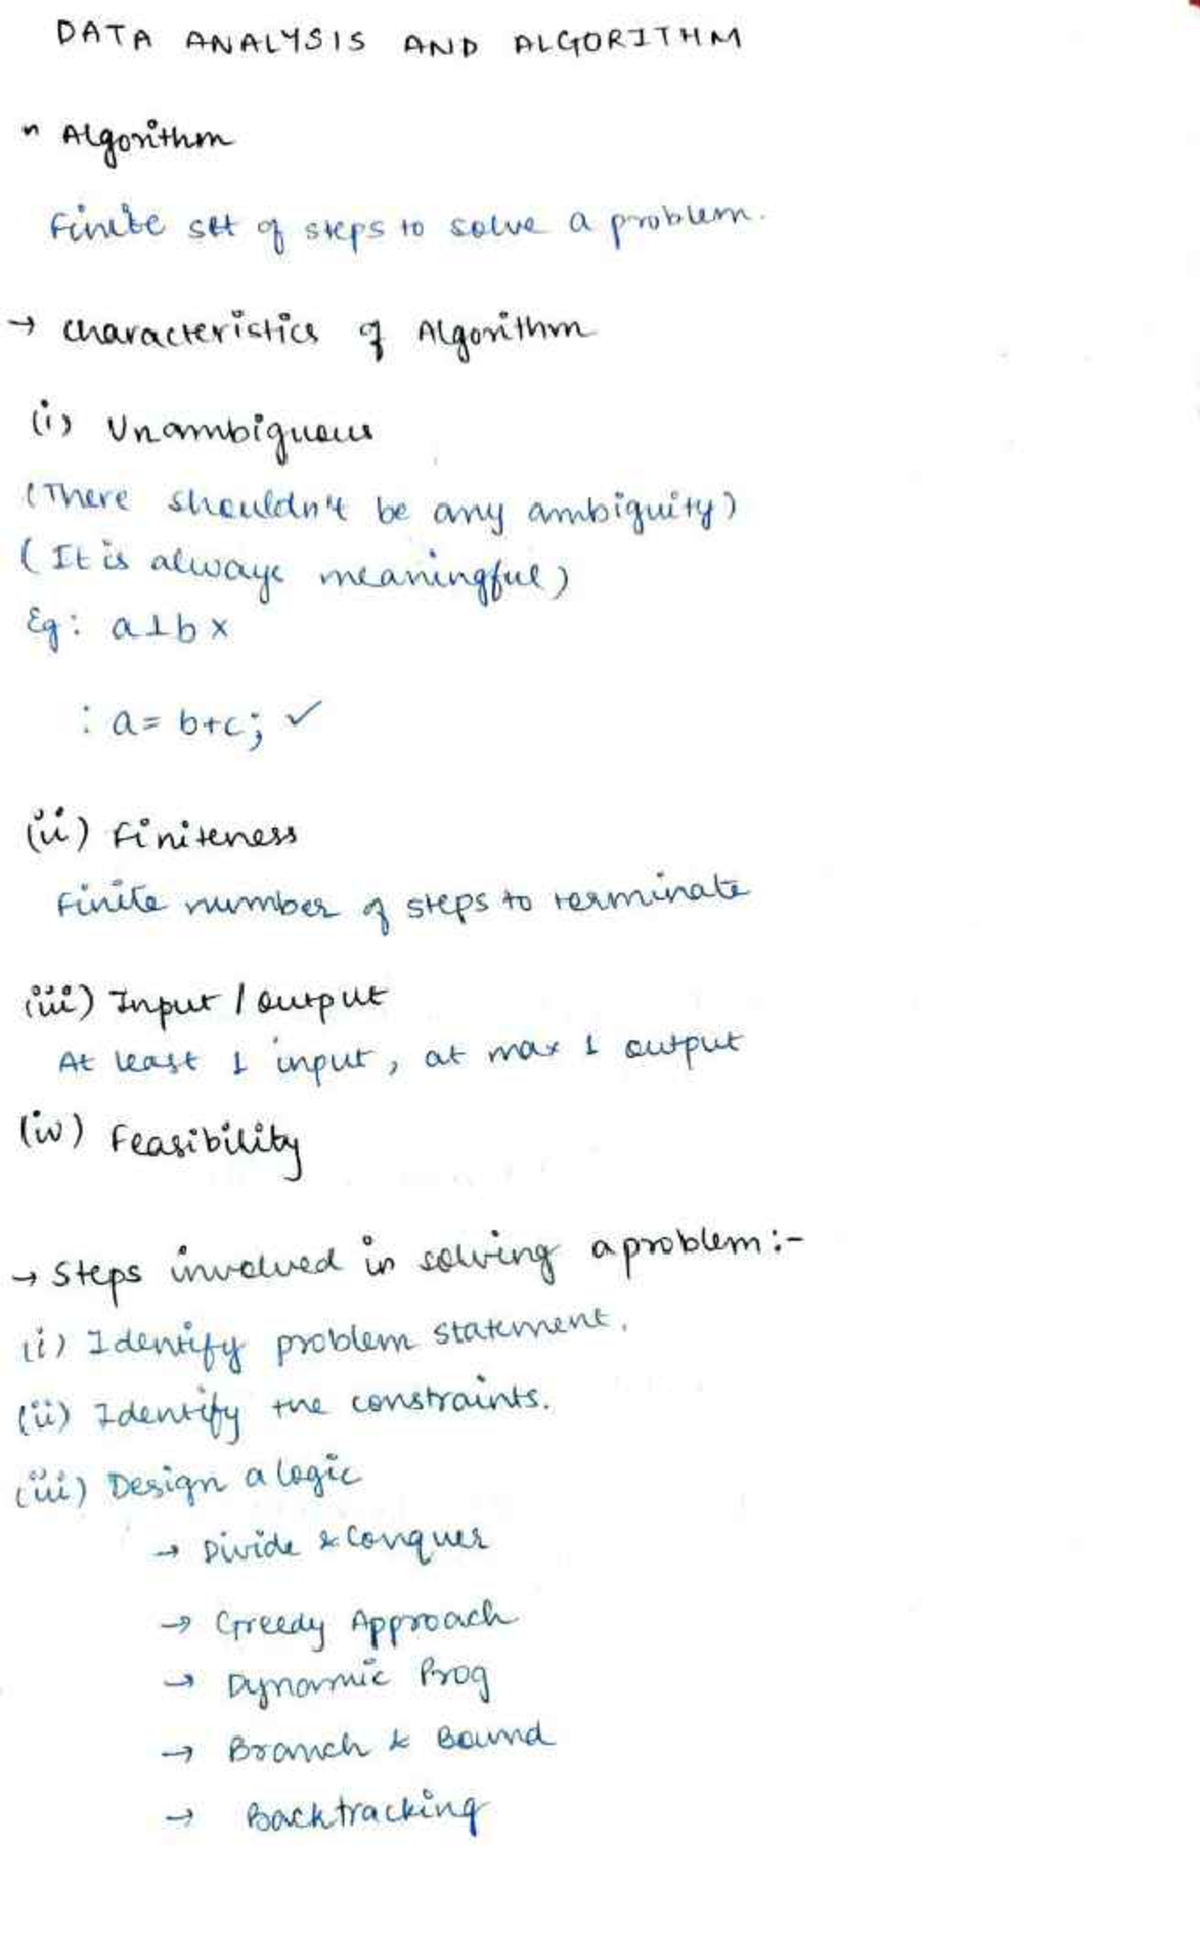 DATA ANALYSIS AND ALGORITHM
" Algorithm
Finite set of steps to solve a problem.
→ Characteristics of Algorithm
(i) Unambiguous
(There shouldn't be any ambiguity)
(It is always meaningful)
Eg: a⊥b x
: a= b+c; ✓
(ii) Finiteness
Finite number of steps to terminate
(iii) Input / output
At least 1 input, at max 1 output
(iv) Feasibility
→ Steps involved in solving a problem:-
(i) Identify problem statement.
(ii) Identify the constraints.
(iii) Design a logic
→ Divide & Conquer
→ Greedy Approach
→ Dynamic Prog
→ Branch & Bound
→ Backtracking